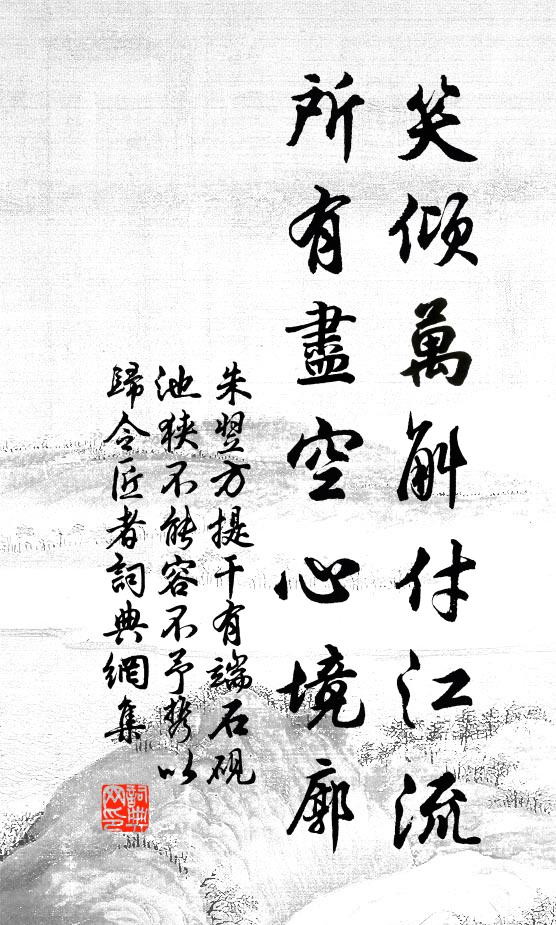 笑傾萬斛付江流
所有盡空心境廓
朱翌方提干有端石硯
池狹不能容不予携以
歸令匠者詞典網集